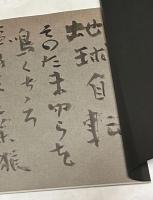 地球自転
そのたまゆらを
鳴くちちろ